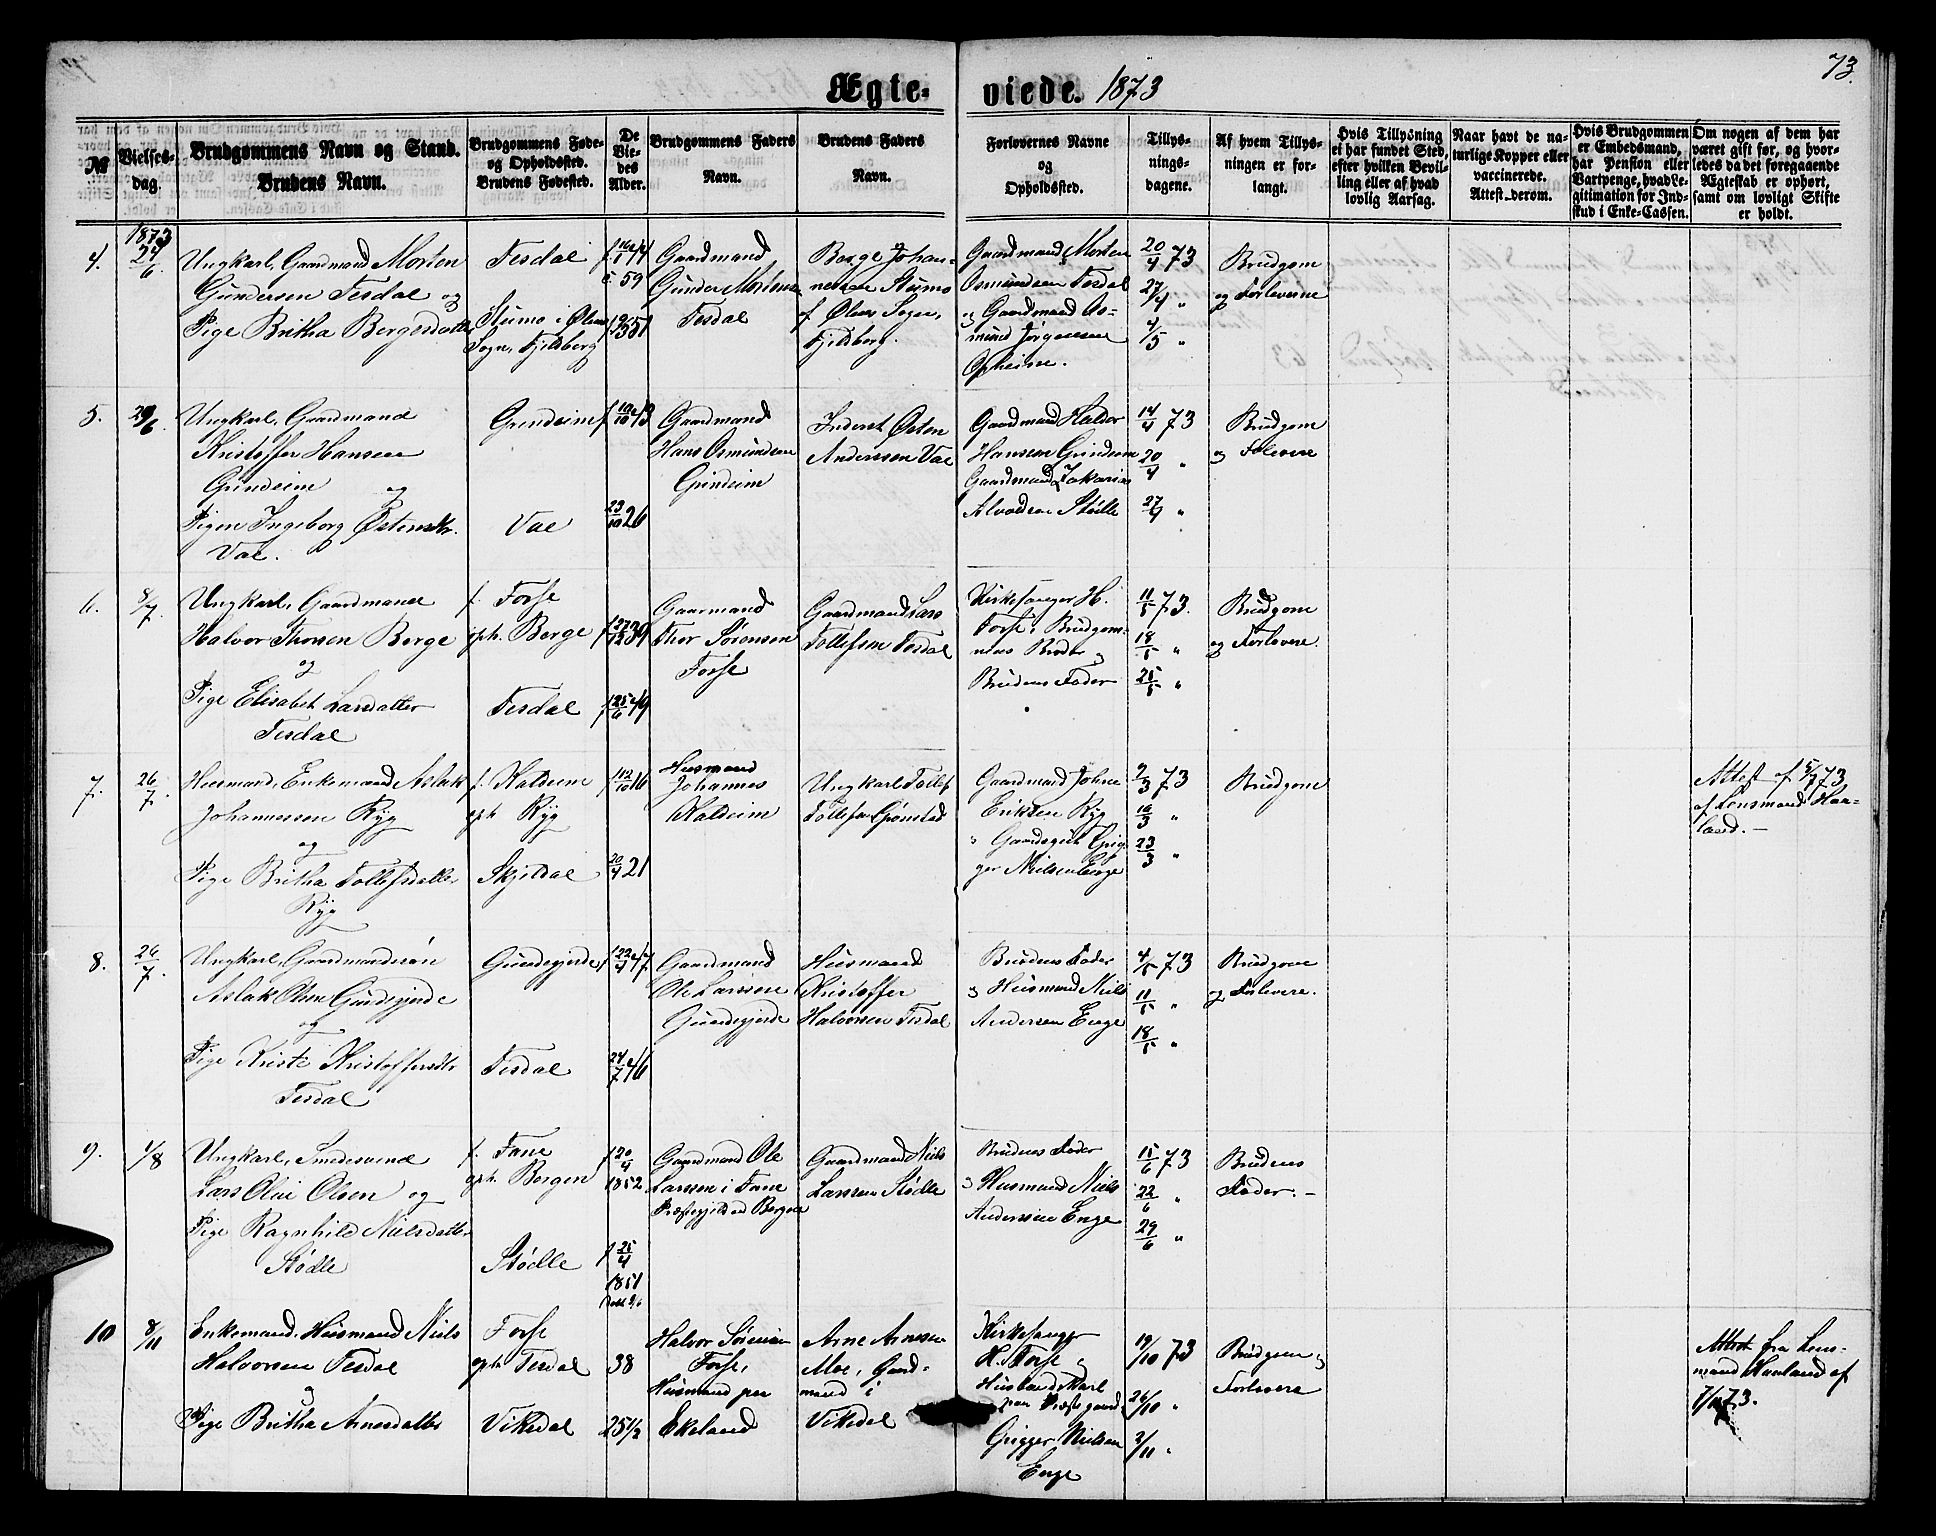 73.
Ægteviede. 1873
№
Vielsesdag.
Brudgommens Navn og Stand.
Brudens Navn.
Brudgommens Føde- og Opholdssted.
Brudens Fødested.
De Viedes Alder.
Brudgommens Faders Navn.
Brudens Faders Navn.
Forlovernes Navne og Opholdssted.
Tillysningsdagene.
Af hvem Tillysningen er forlangt.
Hvis Tillysning ei har fundet Sted, efter hvilken Bevilling eller af hvad lovlig Aarsag.
Naar havt de naturlige Kopper eller vaccinerede. Attest derom.
Hvis Brudgommen er Embedsmand, har Pension eller Vartpenge, hvad Legitimation for Indskud i Enke-Cassen.
Om nogen af dem har været gift før, og hvorledes da det foregaaende Ægteskab er ophørt, samt om lovligt Skifte er holdt.
1873
4. 24/6
Ungkarl, Gaardmand Morten
Gundersen Tesdal og
Pige Britha Bergesdatter
Tesdal
Stumo i Ølens
Sogn, Fjeldberg
Gaardmand
Gunder Mortensen
Tesdal
Berge Johannesen Stumo
f Ølens Sogn,
Fjeldberg.
Gaardmand Morten
Osmundsen Tesdal
og Gaardmand Osmund Jørgensen
Opheim.
20/4 73
27/4 "
4/5 "
Brudgom
og Forloverne
5. 29/6
Ungkarl, Gaardmand
Kristoffer Hansen
Grindeim og
Pigen Ingeborg Østensdtr.
Vae.
Grindeim
Vae
23/10 26
Gaardmand
Hans Osmundsen
Grindeim
Inderst Østen
Anderssen Vae
Gaardmand Haldor
Hansen Grindeim
Gaardmand Zakarias
Alvadsen Stølle
14/4 73
20/4 "
27/4 "
Brudgom
og Folevere
6. 8/7
Ungkarl, Gaardmand
Halvor Thorsen Berge
og
Pige Elisabet Larsdatter
Tesdal
f. Forse
oph. Berge
Tesdal
f 27/12 39
f 25/6 49
Gaarmand
Thor Sørensen
Forse
Gaardmand Lars
Tollefsen Tesdal
Kirkesanger H.
Forse, Brudgommens Broder og
Brudens Fader
11/5 73.
18/5 "
25/5 "
Brudgom
og Forlovere.
7. 26/7.
Huusmand, Enkemand Aslak
Johannessen Ryg
og
Pige Britha Tollefsdatter
Ryg
f. Kaldeim
oph Ryg
Skjeldal
20/4 21
Husmand
Johannes
Kaldeim
Ungkarl Tollef
Tollefsen Grønstad
Gaardmand Johne
Eriksen Ryg
" Gaardsgut Grigger Nielsen Enge
9/3 73
16/3 "
23/3 "
Brudgom
Attest af 5/7 73
af Lensmand Haaland. —
8. 26/7.
Ungkarl, Gaardmandssøn
Aslak Olsen Gundegjerde
og
Pige Kristi Kristoffersdtr
Tesdal
Gundegjerde
Tesdal
f 22/4 47.
24/7 46
Gaardmand
Ole Larssen
Gundegjerde
Husmand
Kristoffer
Halvorsen Tesdal
Brudens Fader
og Husmand Niels
Andersen Enge
4/5 73
11/5 "
18/5 "
Brudgom
og Forlovere.
9. 1/8
Ungkarl, Smedesvend
Lars Olai Olsen og
Pige Ragnhild Nielsdatter
Stødle
f. Fane
oph. Bergen
Stødle
f 20/4
1852
f 25/4
1851
Gaardmand Ole
Larssen i Fane
Præstegjeld ved Bergen
Gaardmand Niels
Larssen Stødle
Brudens Fader
og Husmand Niels
Anderssen Enge
15/6 73
22/6 "
29/6 "
Brudens
Fader. —
10 8/11
Enkemand, Huusmand Niels
Halvorsen Tesdal
og
Pige Britha Arnesdatter
Forse
oph Tesdal
Vikedal
38
25 1/2
Halvor Sørensen
Forse,
Huusmand paa
Ekeland
Arne Arnesen
Moe, Gaardmand i
Vikedal
Kirkesanger
H. Forse og
Husbondskarl
paa Præstegaard
Grigger Nielsen
Enge
19/10 73
26/10 "
2/11 "
Brudgom og
Forlovere
Attest fra Lensmand Haaland af
7/11 73.